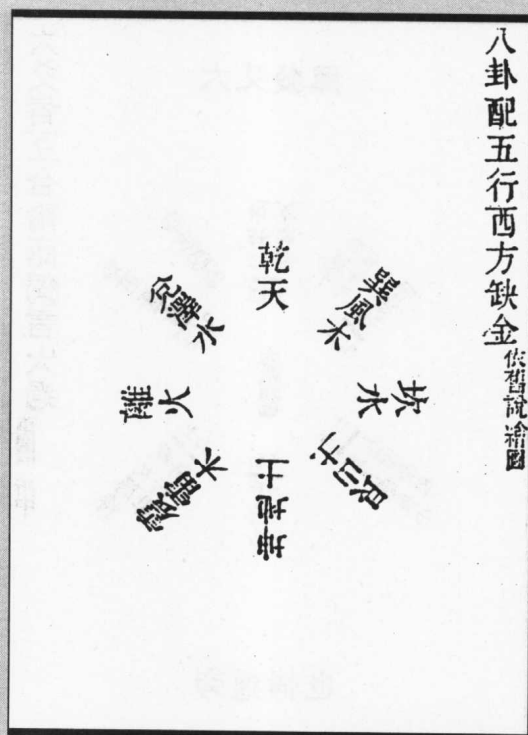 八卦配五行西方缺金
依舊說繪圖
乾天
巽風木
坎水
艮山土
坤地土
震雷木
離火
兌澤水